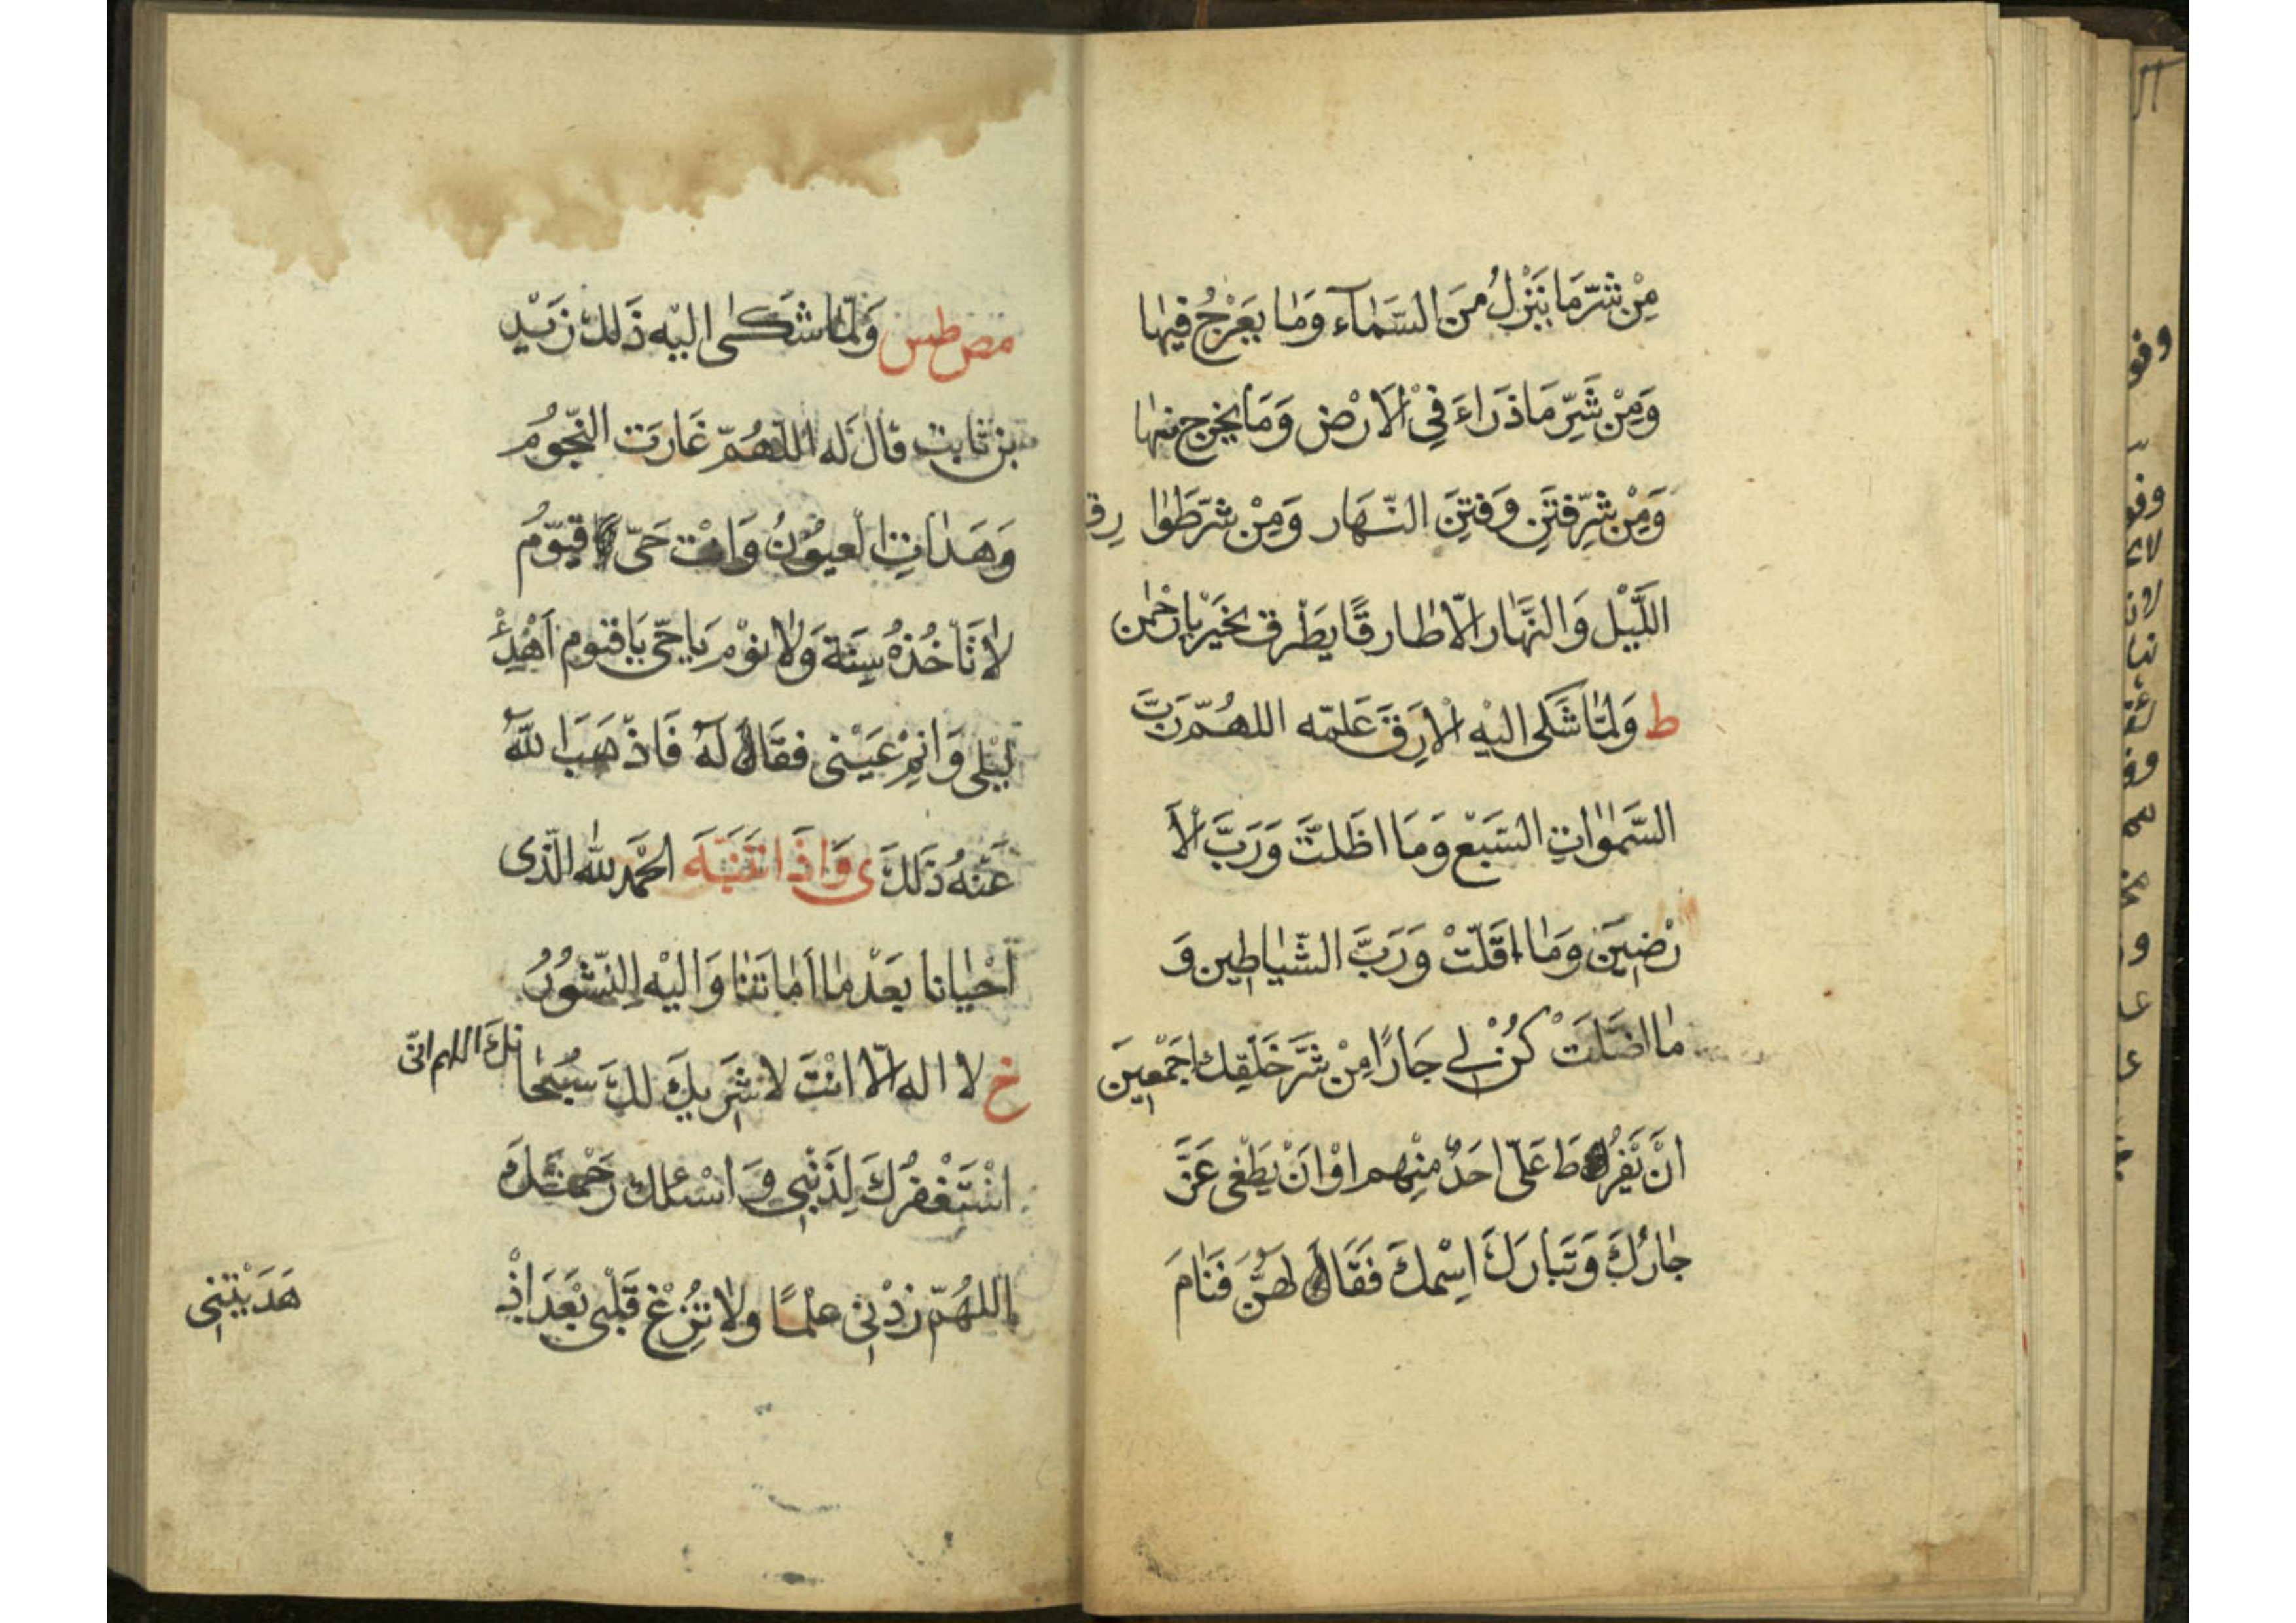 مِنْ شَرِّ مَا يَنْزِلُ مِنَ السَّمٰآءِ وَمٰا يَعْرُجُ فِيهٰا
وَمِنْ شَرِّ مَا ذَرَاءَ فِي الْاَرْضِ وَمَا يَخْرج منهٰا
وَمِنْ شَرِّ فِتَنِ وَفِتَنِ النَّهَار وَمِنْ شَرِّ طَوٰا رِق
اللَّيْل وَالنَّهٰار اِلّا طٰارِقًا يَطْرق بخَيْر يٰا رَحْمٰن
ط وَلَمّٰا شَكٰى اليْه الْاَرِقَ عَلَّمه اللهُمّ رَبَّ
السَّمٰوٰاتِ السَّبْع وَمَا اظَلّتْ وَرَبَّ الْاَ
رْضِينَ وَمٰا اقَلّتْ وَرَبَّ الشَّيٰاطِين وَ
مٰا اضَلّتَ كُنْ لِي جَارًا مِنْ شَرّ خَلْقِك اجَمْعِينَ
انْ يَفْرُطَ عَلَىّ احَدٌ مِنْهم اوْ انْ يَطْغٰى عَزَّ
جٰارُكَ وَتَبٰارَكَ اسْمكَ فَقَالَهُنَّ فَنٰامَ
مص طس وَلَمّٰا شَكٰى اليْه ذَلكَ زَيْد
بن ثابت قال لَه اللّهُمّ غَارَت النّجُومُ
وَهَدَاتِ العيُونُ وَانْت حَىّ قَيّوُمُ
لٰا تَاخُذُهُ سِنَة وَلٰا نوْم يَا حَىّ يَا قيوم اَهْدِئْ
ليْلِى وَانِمْ عَيْنى فقَالَ لَهُ فَاذْهَبَ اللهُ
عَنْهُ ذَلكَ ى وَاِذَا انتَبَهَ الحَمْد لله الّذى
اَحْيٰانا بَعْد مٰا اَمٰاتَنٰا وَاليْه النّشُوُرُ
خ لا اله الّا انْتَ لا شَرِيكَ لكَ سُبْحٰا نكَ اللهم انّى
اسْتَغْفرُكَ لِذَنْبِى وَ اسْئلك رَحْمَتكَ
اللهُمّ زدْنِى علْمًا ولٰا تُزِغْ قَلْبى بَعْدَ اذْ
هَدَيْتَنِى